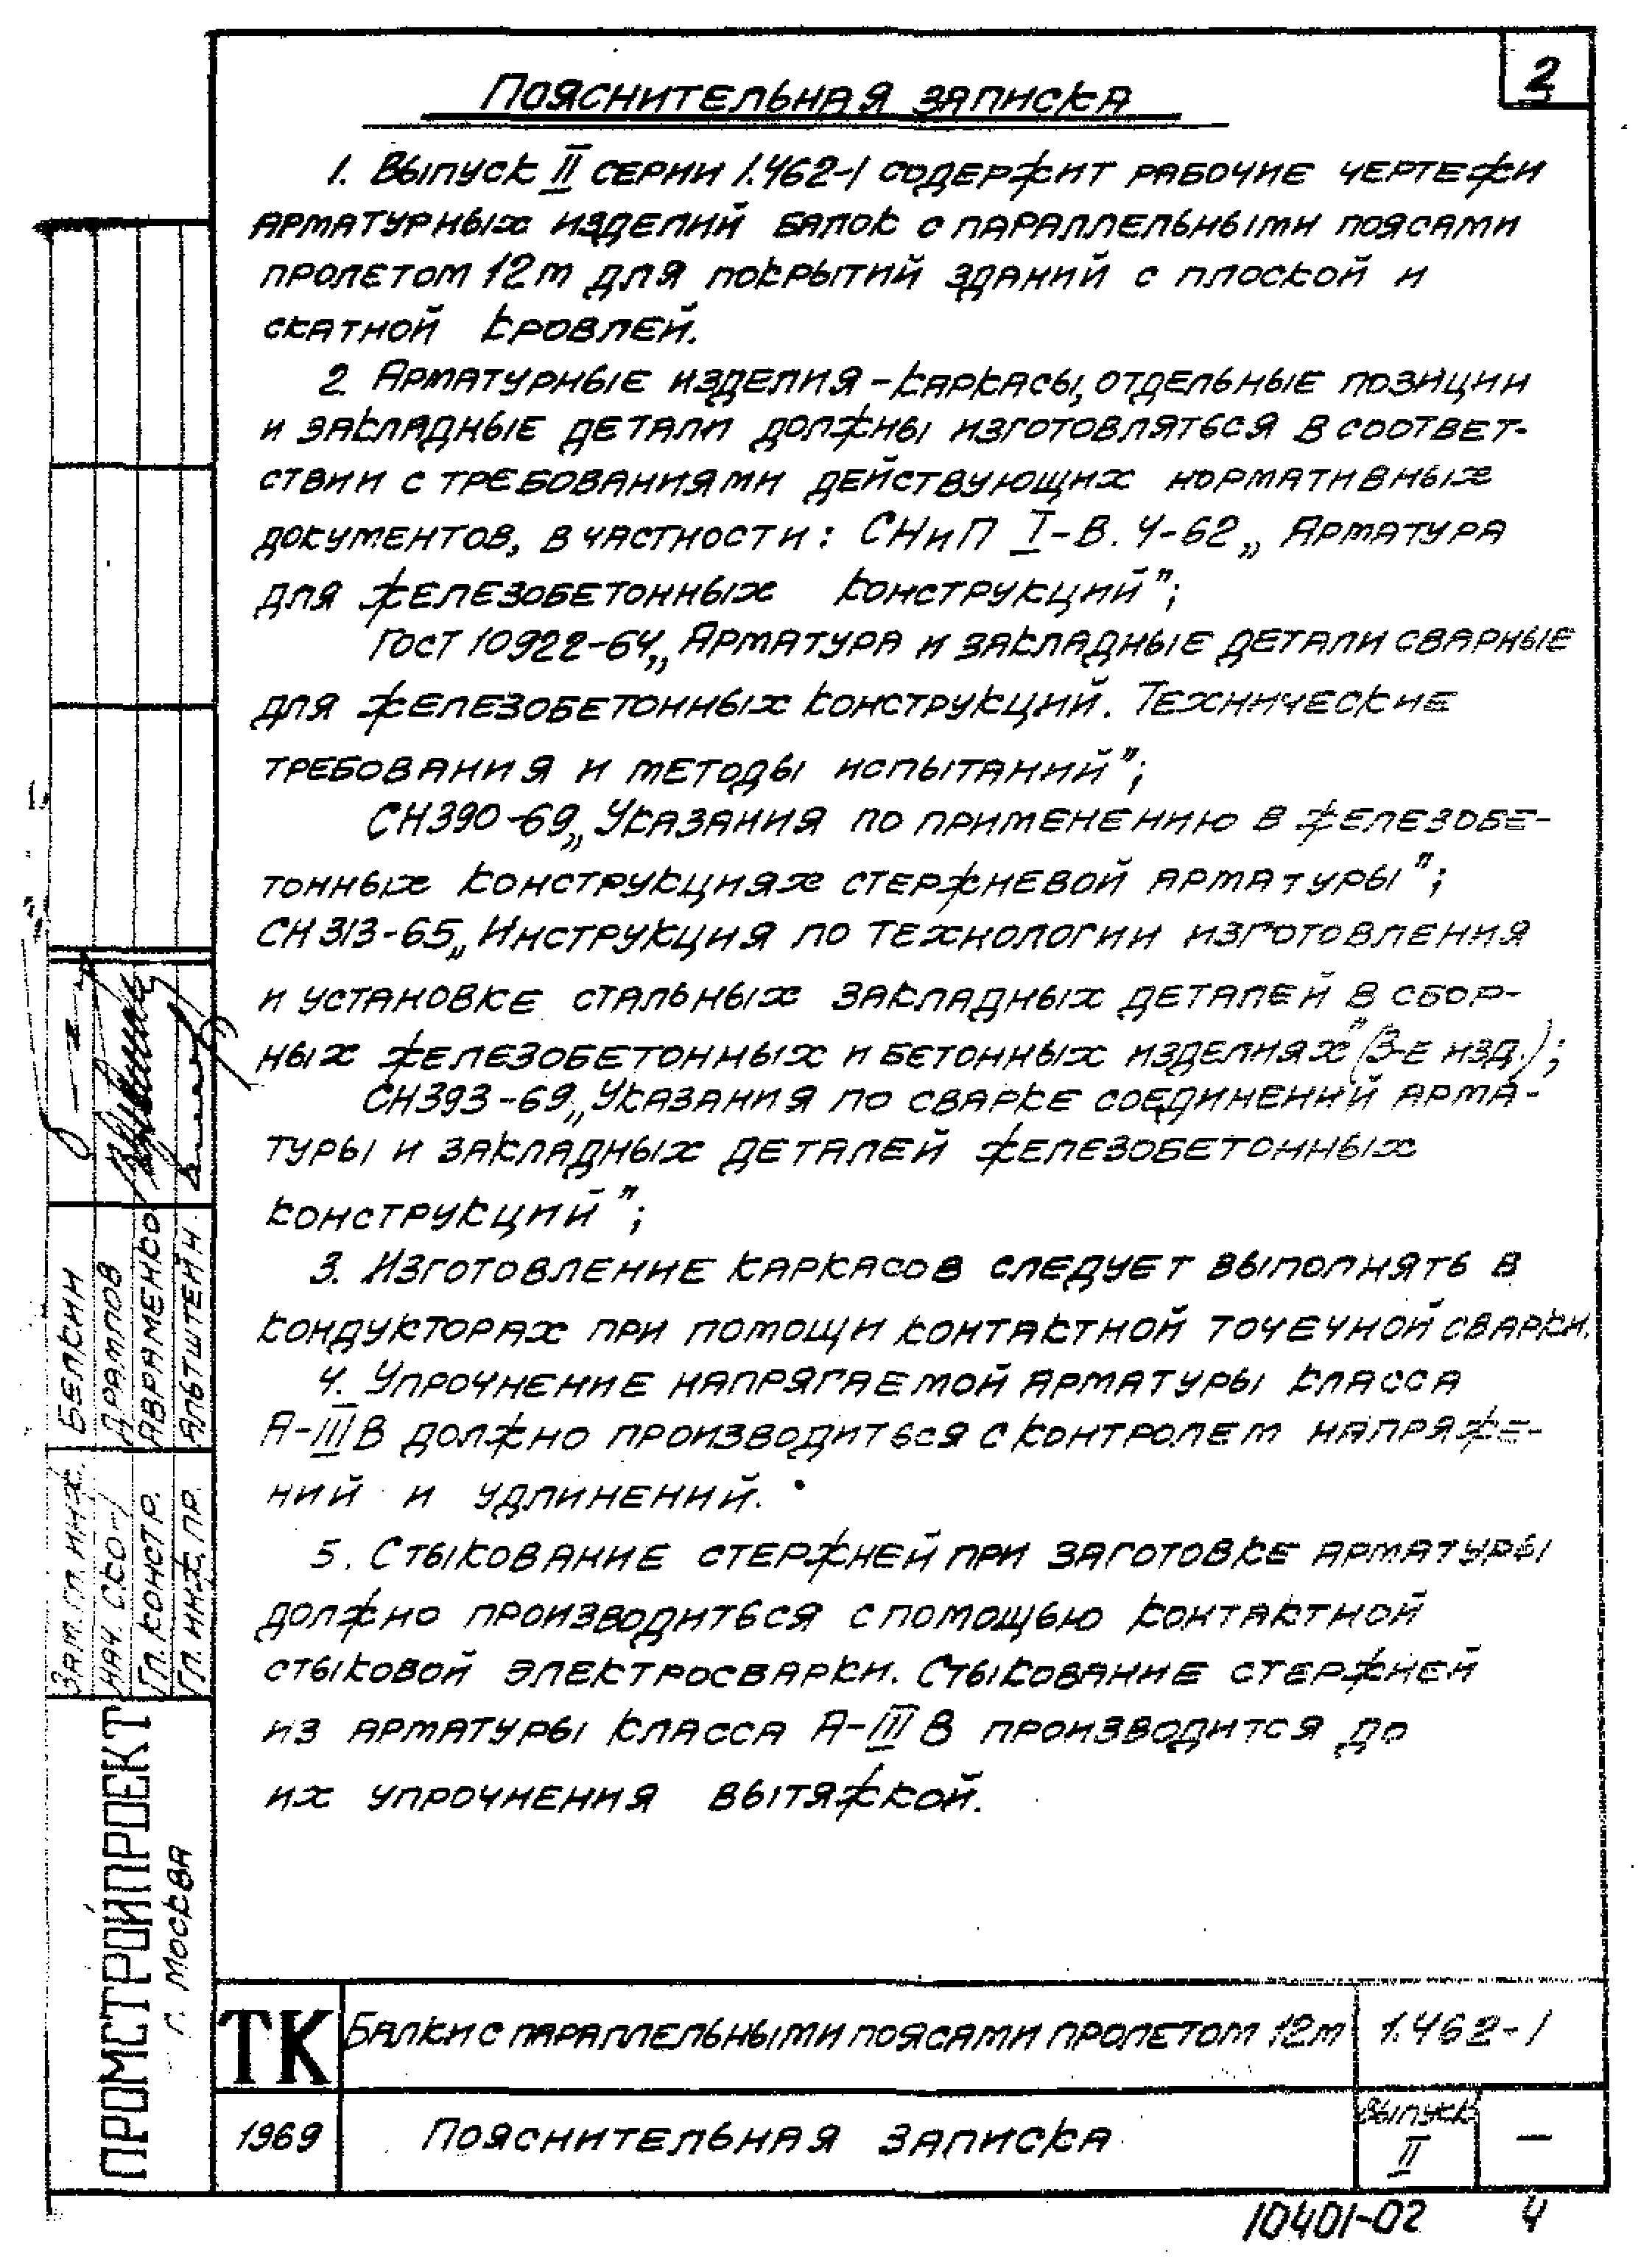 2
Пояснительная записка
1. Выпуск II серии 1.462-1 содержит рабочие чертежи
арматурных изделий балок с параллельными поясами
пролетом 12м для покрытий зданий с плоской и
скатной кровлей.
2. Арматурные изделия - каркасы, отдельные позиции
и закладные детали должны изготовляться в соответ-
ствии с требованиями действующих нормативных
документов, в частности: СНиП I-В.4-62 „Арматура
для железобетонных конструкций";
ГОСТ 10922-64 „Арматура и закладные детали сварные
для железобетонных конструкций. Технические
требования и методы испытаний";
СН390-69 „Указания по применению в железобе-
тонных конструкциях стержневой арматуры";
СН 313-65 „Инструкция по технологии изготовления
и установке стальных закладных деталей в сбор-
ных железобетонных и бетонных изделиях" (3-е изд.);
СН393-69 „Указания по сварке соединений арма-
туры и закладных деталей железобетонных
конструкций";
3. Изготовление каркасов следует выполнять в
кондукторах при помощи контактной точечной сварки.
4. Упрочнение напрягаемой арматуры класса
А-IIIВ должно производиться с контролем напряже-
ний и удлинений.
5. Стыкование стержней при заготовке арматуры
должно производиться с помощью контактной
стыковой электросварки. Стыкование стержней
из арматуры класса А-IIIВ производится до
их упрочнения вытяжкой.
Зам. гл. инж. Белкин
Нач. СКО-1
Гл. констр. Авраменко
Гл. инж. пр. Альтштейн
ПРОМСТРОЙПРОЕКТ
г. Москва
ТК Балки с параллельными поясами пролетом 12м 1.462-1
1969 Пояснительная записка Выпуск II –
10401-02 4